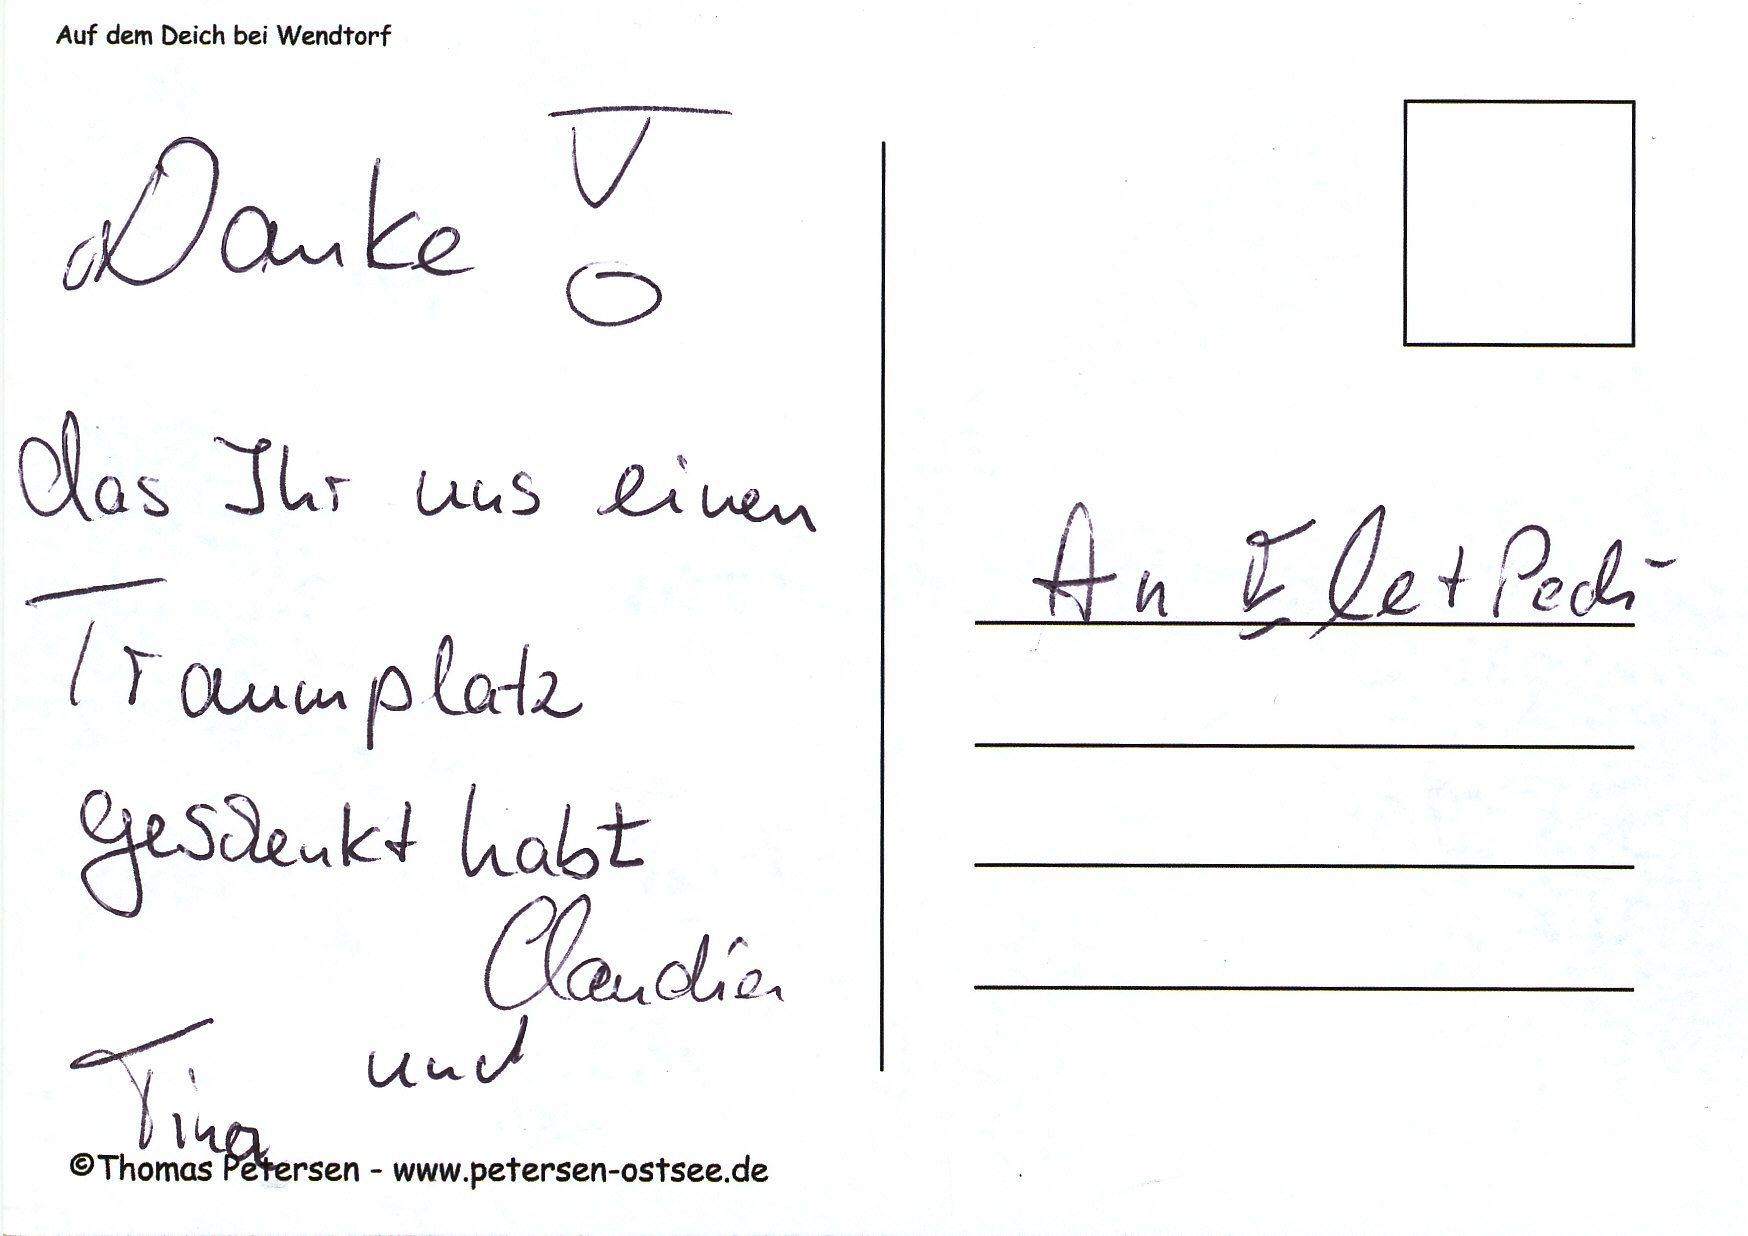 Auf dem Deich bei Wendtorf
Danke !
das Ihr uns einen
Traumplatz
geschenkt habt
Claudia
und
Tina
©Thomas Petersen - www.petersen-ostsee.de
An